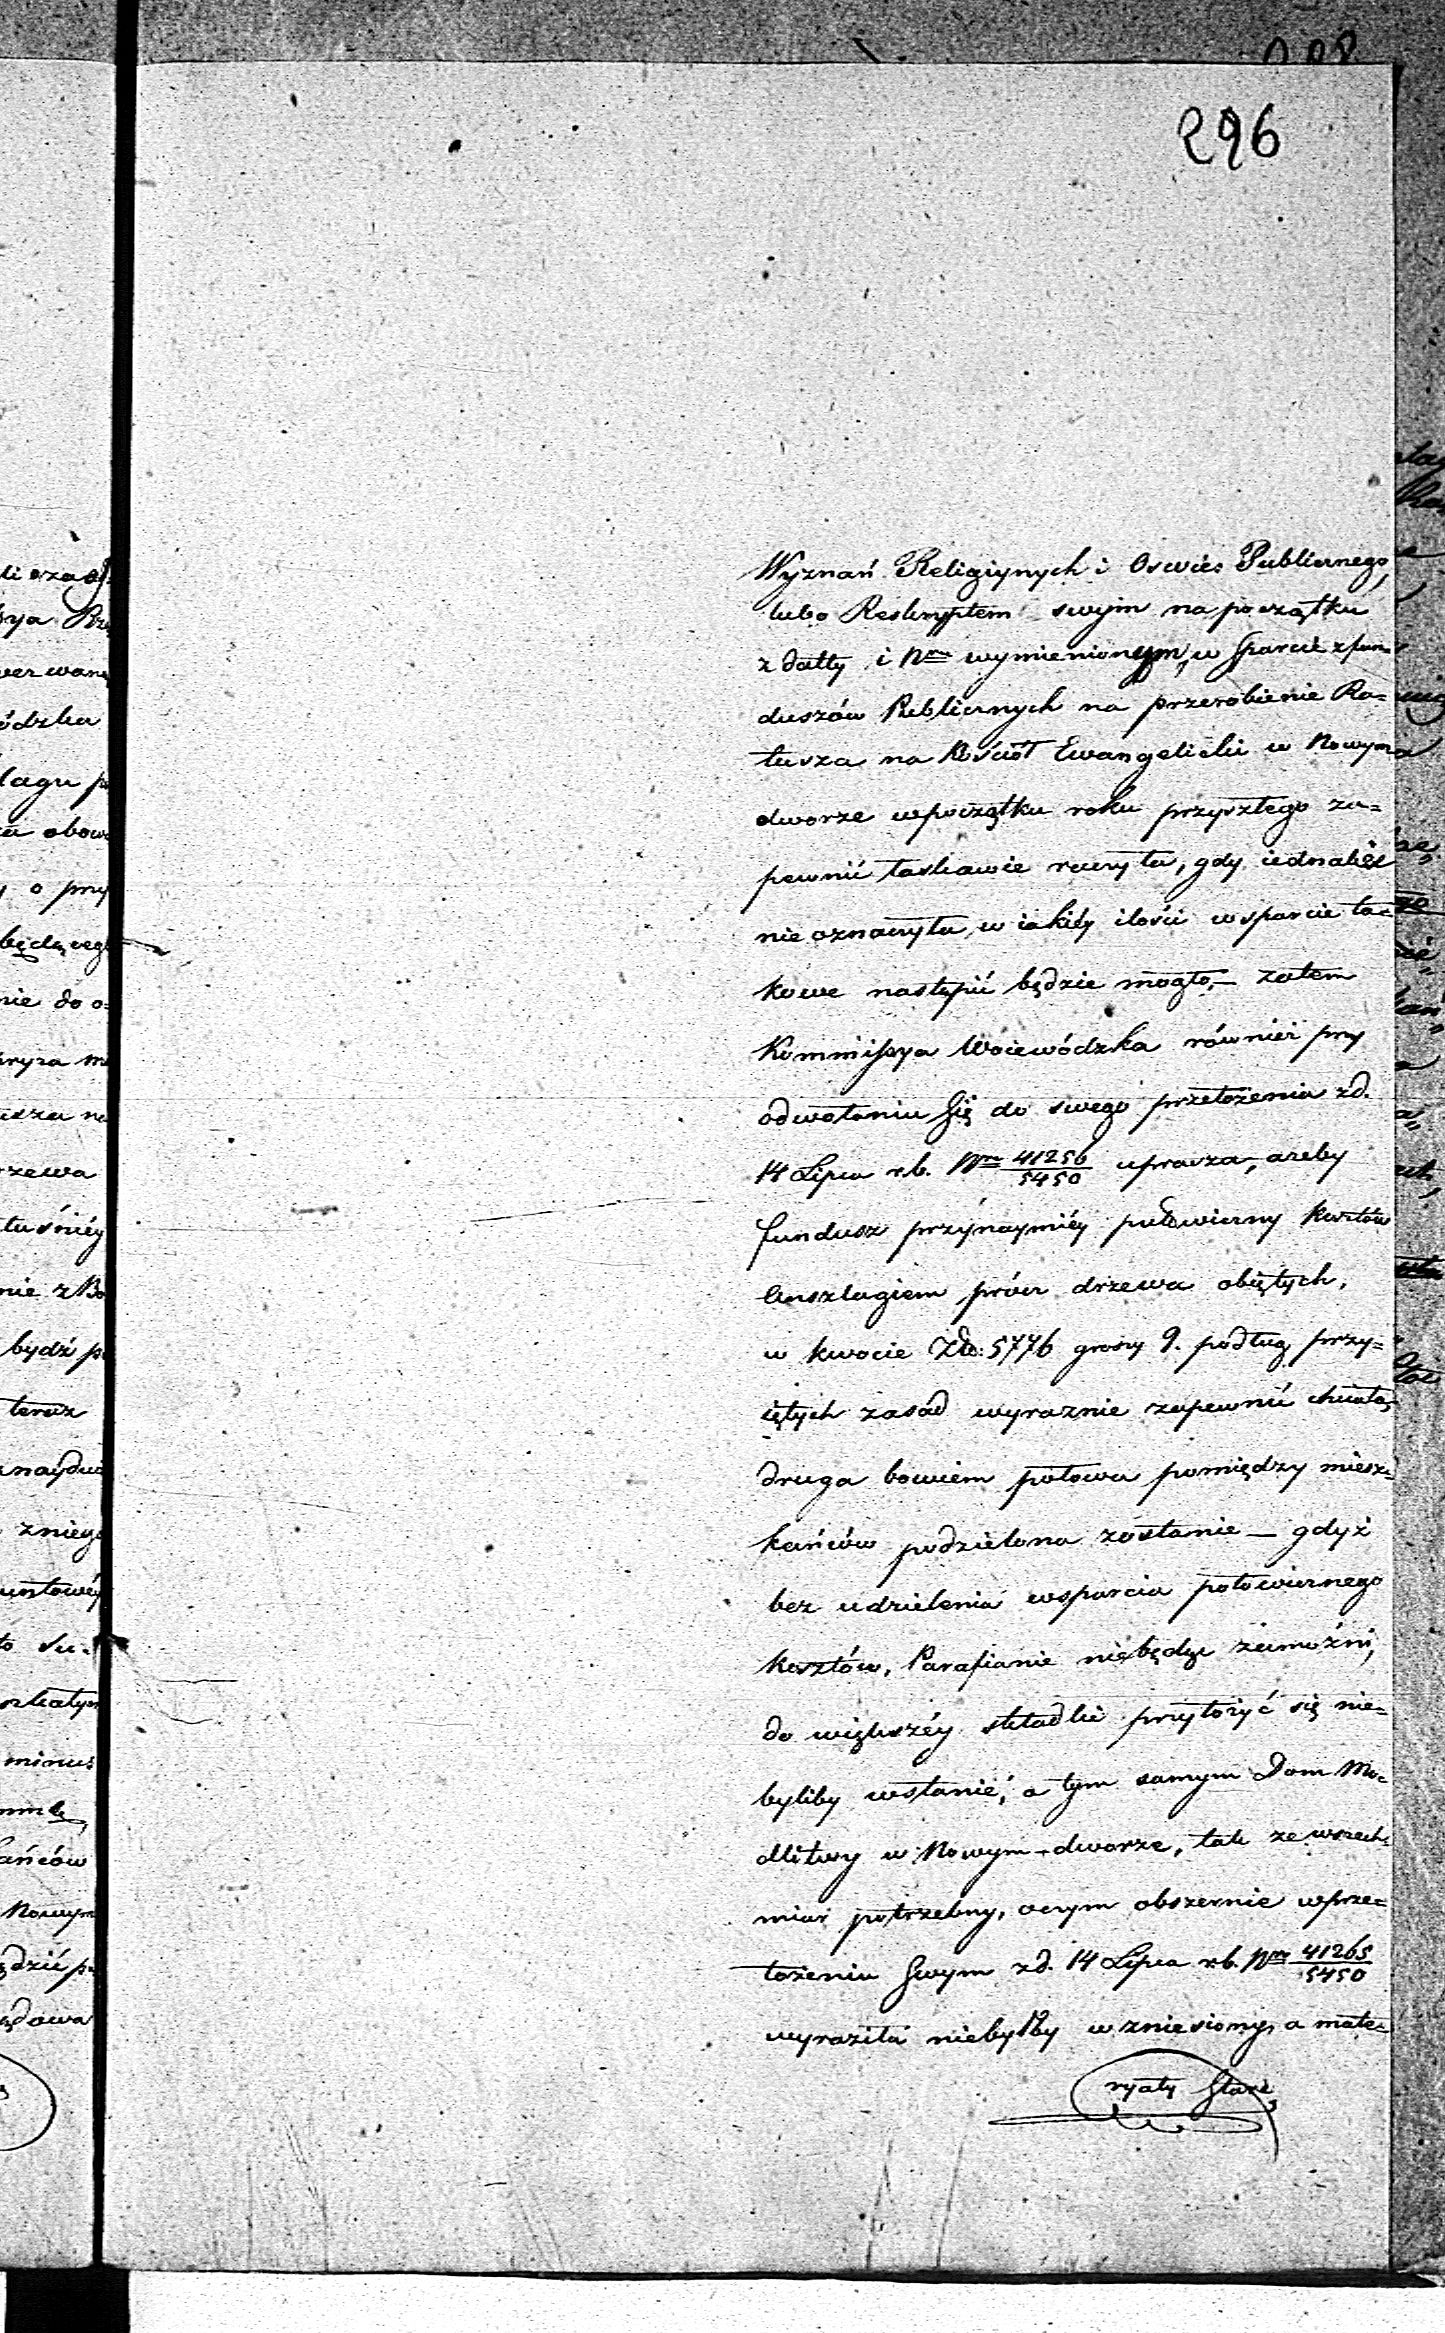 296
Wyznań Religiynych i Oswiec Publicznego,
lubo Reskryptem swym na początku
z datty i Nru wymienionym, w sparcie z fun=
duszów Publicznych na przerobienie Ra=
tusza na Kościół Ewangelicki w Nowym
dworze wpoczątku roku przyszłego za=
pewnić łaskawie raczyła, gdy iednakże
nie oznaczyła, w iakiéy ilości wsparcie ta=
kowe nastąpić będzie mogło, – zatem
Kommissya Woiewódzka również przy
odwołaniu się do swego przełożenia z d.
14 Lipca r.b. Nrm 41256/5450 uprasza, ażeby
fundusz przynaymiéy połowiczny kosztów
Anszlagiem prócz drzewa obiętych,
w kwocie Złp: 5776 groszy 9. podług przy=
iętych zasad wyraznie zapewnić chciała,
druga bowiem połowa pomiędzy miesz=
kańców podzielona zostanie – gdyż
bez udzielenia wsparcia połowicznego
kosztów, Parafianie niebędąc zamożni,
do większéy składki przyłożyć się nie=
byliby wstanie, a tym samym Dom Mo=
dlitwy w Nowym-dworze, tak ze wszech
miar potrzebny, oczym obszernie wprze=
łożeniu swym z d. 14 Lipca r.b. Nrm 41265/5450
wyraziła niebyłby wzniesiony, a mate=
ryały Stare